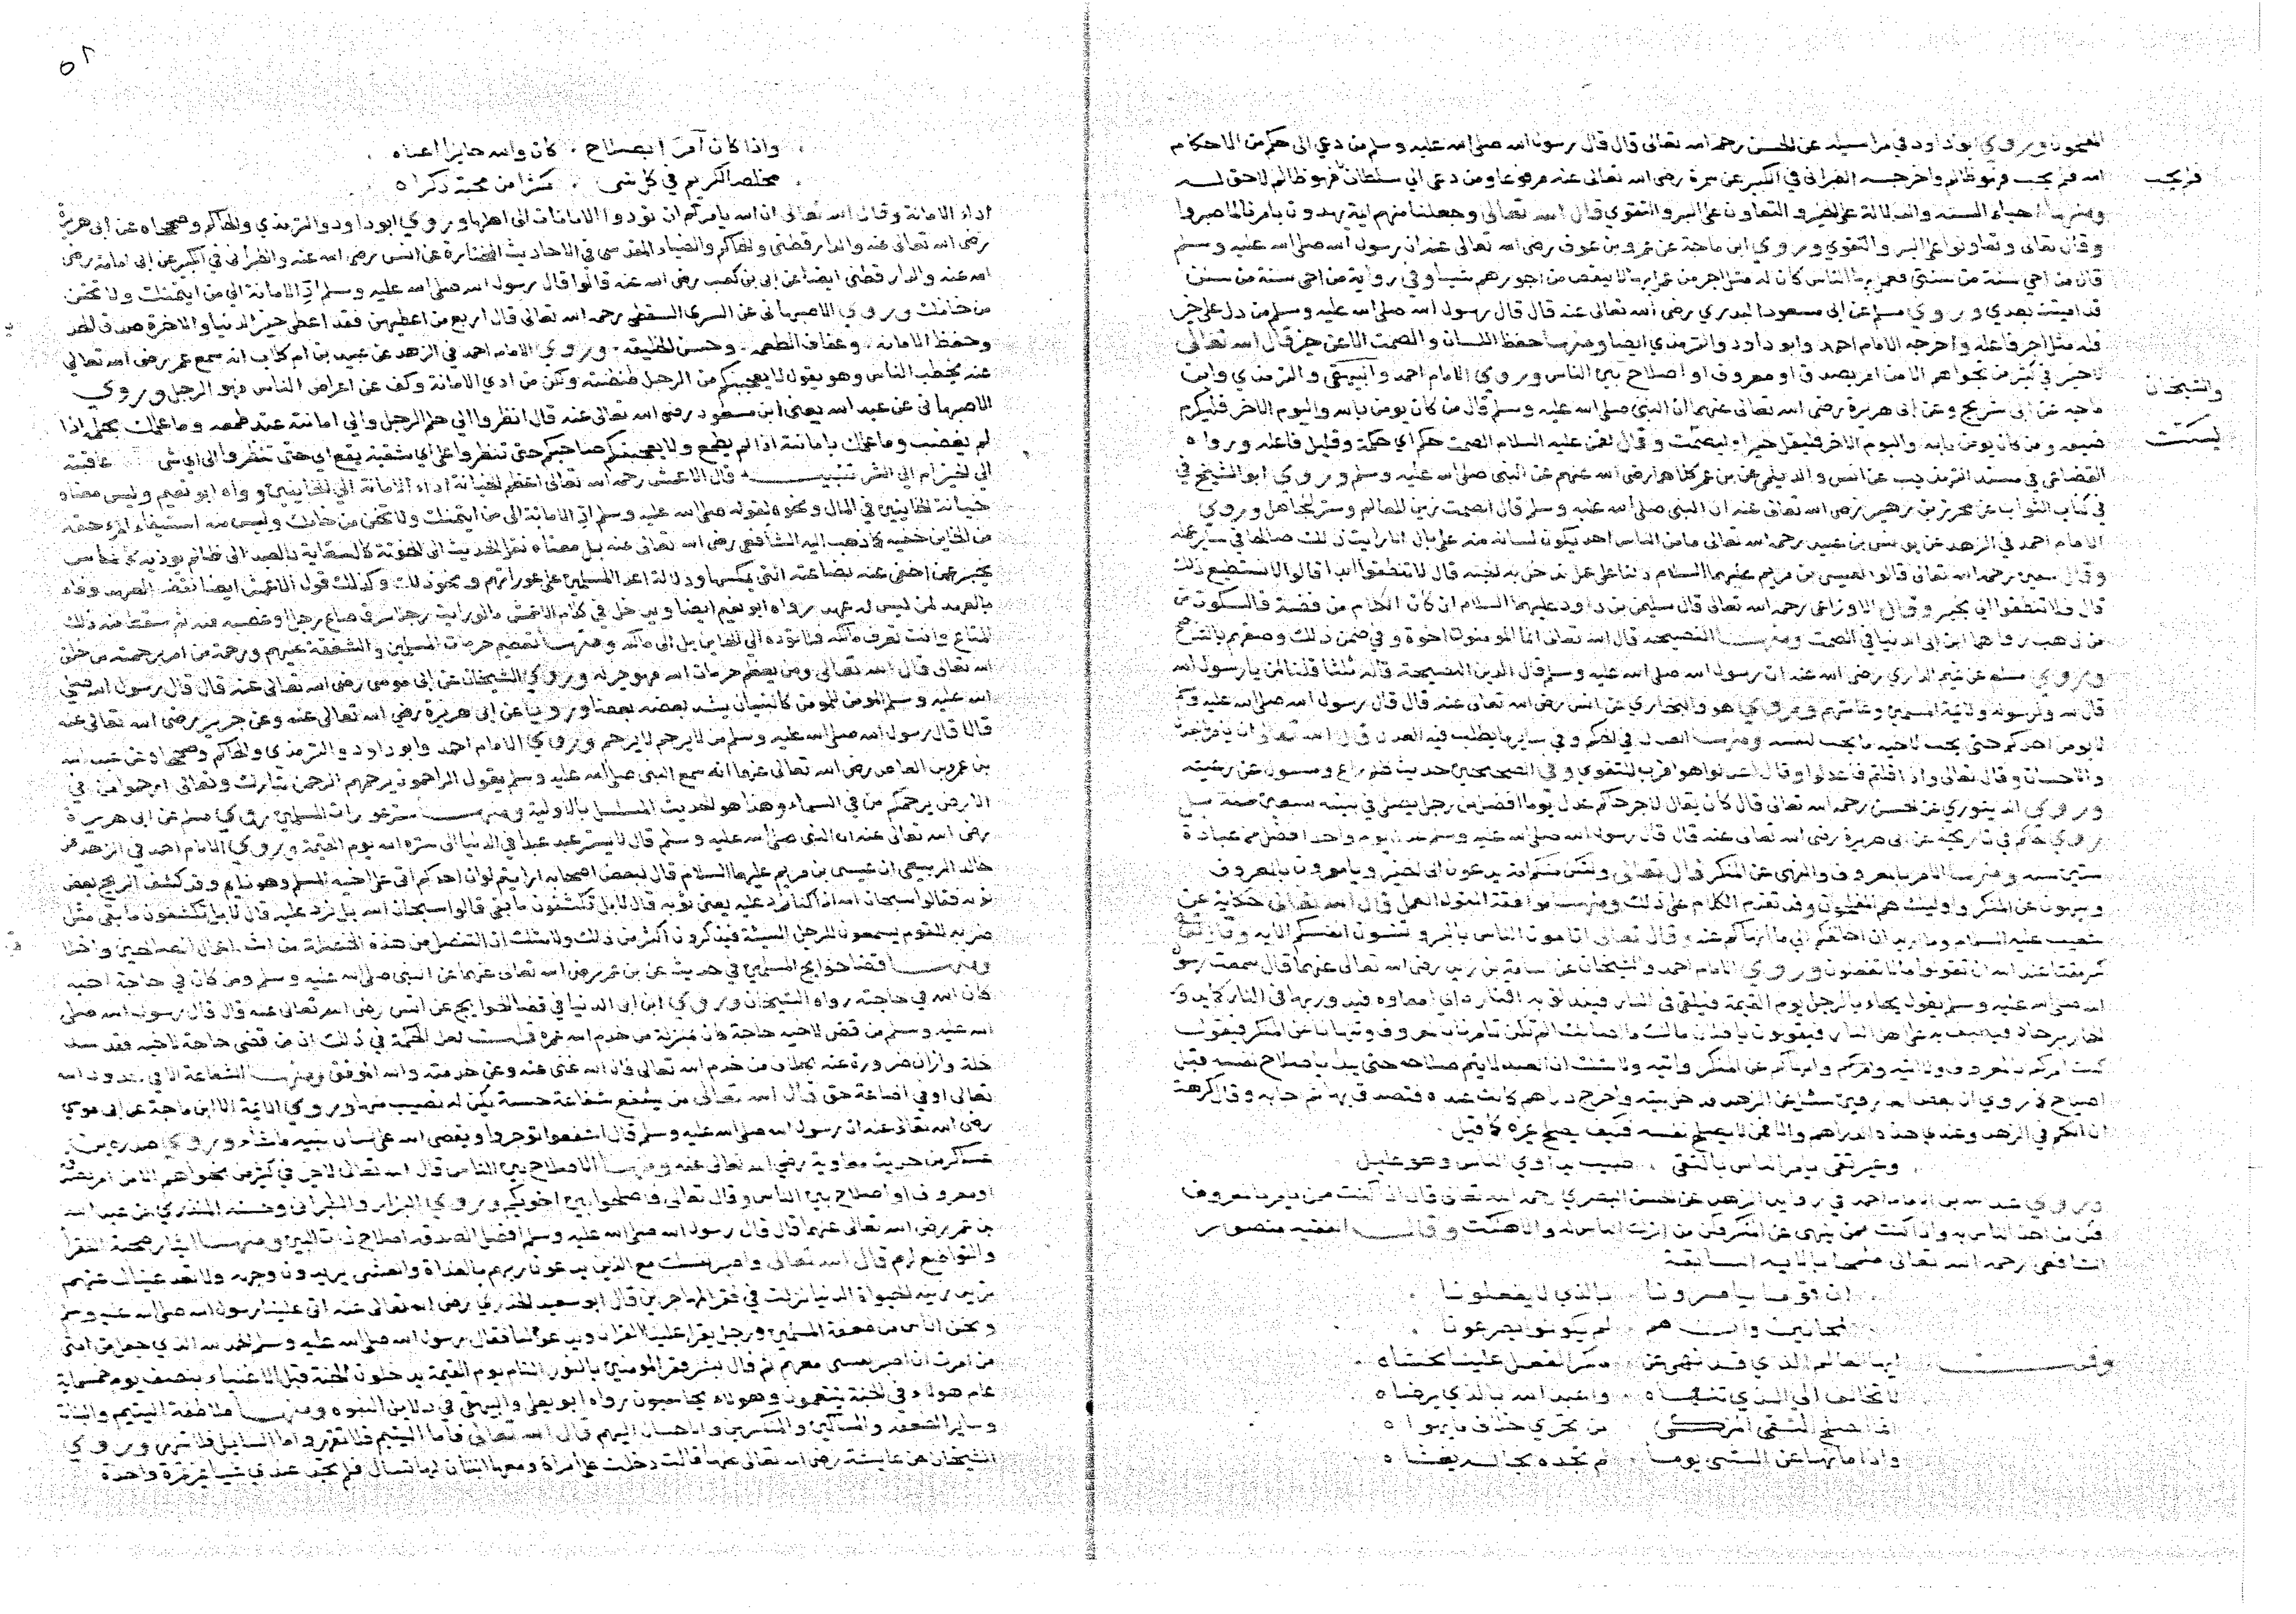 المفلحون وروي ابو داود في مراسيله عن الحسن رحمه الله تعالى قال قال رسول الله صلى الله عليه وسلم من دعي الى حكم من الاحكام
فلم يجب
الله فلم يجب فهو ظالم واخرجه الطبراني في الكبير عن سمرة رضى الله تعالى عنه مرفوعا ومن دعى الي سلطان فهو ظالم لاحق لـه
ومنهـا احياء السنه والدلالة على الخير والتعاون على البر والتقوي قال الله تعالى وجعلنا منهم اية يهدون بامرنا لما صبروا
وقال تعالى وتعاونوا على البر والتقوي وروي ابن ماجة عن عمرو بن عوف رضى الله تعالى عنه ان رسول الله صلى الله عليه وسلم
قال من احي سنة من سنتي فعمل بها الناس كان له مثل اجر من عمل بها لا ينقص من اجورهم شيا وفي رواية من احي سنة من سنتي
قد اميتت بعدي وروي مسلم عن ابى مسعود البدري رضى الله تعالى عنه قال قال رسول الله صلى الله عليه وسلم من دل على خير
فله مثل اجر فاعله واخرجه الامام احمد وابو داود والترمذي ايضا ومنهـا حفظ اللسان والصمت الا عن خير قال الله تعالى
لا خير في كثير من نجواهم الا من امر بصدقة او معروف او اصلاح بين الناس وروي الامام احمد والبيهقي والترمذي وابن
والشيخان
ماجه عن ابى شريح وعن ابى هريرة رضى الله تعالى عنهما ان النبي صلى الله عليه وسلم قال من كان يومن بالله واليوم الاخر فليكرم
ليسكت
ضيفه ومن كان يومن بالله واليوم الاخر فليقل خيرا او ليصمت وقال لقمن عليه السلام الصمت حكم اي حكمة وقليل فاعله ورواه
القضاعي في مسند عن انس والديلمي عن بن عمر كلاهما رضى الله عنهم عن النبى صلى الله عليه وسلم وروي ابو الشيخ في
في كتاب الثواب عن محرز بن زهير رضى الله تعالى عنه ان النبى صلى الله عليه وسلم قال الصمت زين للعالم وستر للجاهل وروي
الامام احمد في الزهد عن يونس بن عبيد رحمه الله تعالى ما من الناس احد يكون لسانه منه على بال الا رايت ذلك صلاحا في ساير عمله
وقال سفين رحمه الله تعالى قالوا لعيسى بن مريم عليهما السلام دلنا على عمل ندخل به الجنه قال لا تنطقوا ابدا قالوا لا نستطيع ذلك
قال فلا تنطقوا الا بخير وقال الاوزاعي رحمه الله تعالى قال سليمن بن داود عليهما السلام ان كان الكلام من فضة فالسكوت من
من ذهب رواهما ابن ابى الدنيا في الصمت ومنهـا النصيحه قال الله تعالى انما المومنون اخوة وفي ضمن ذلك وصفهم بالتناصح
وروي مسلم عن تميم الداري رضى الله عنه ان رسول الله صلى الله عليه وسلم قال الدين النصيحة قاله ثلثا قلنا لمن يا رسول الله
قال لله ولرسوله ولايمة المسلمين وعامتهم وروي هو والبخاري عن انس رضى الله تعالى عنه قال قال رسول الله صلى الله عليه وسلم
لا يومن احدكم حتى يحب لاخيه ما يحب لنفسه ومنهـا العدل في الحكم وفي سايرما يطلب فيه العدل قال الله تعالى ان الله يامر بالعدل
والاحسان وقال تعالى واذا قلتم فاعدلوا وقال اعدلوا هو اقرب للتقوي وفي الصحيحين حديث كلكم راع ومسول عن رعيته
وروي الدينوري عن الحسن رحمه الله تعالى قال كان يقال لاجر حاكم عدل يوما افضل من رجل يصلى في بيته سبعين سنة
روي الحاكم في تاريخه عن ابى هريرة رضى الله تعالى عنه قال قال رسول الله صلى الله عليه وسلم عدل يوم واحد افضل من عبادة
ستين سنه ومنهـا الامر بالمعروف والنهى عن المنكر قال تعالى ولتكن منكم امة يدعون الى الخير ويامرون بالمعروف
وينهون عن المنكر واوليك هم المفلحون وقد تقدم الكلام على ذلك ومنهـا موافقة القول العمل قال الله تعالى حكاية عن
شعيب عليه السلام وما اريد ان اخالفكم الى ما انهاكم عنه وقال تعالى اتامرون الناس بالبر وتنسون انفسكم الايه وقال تعالى
كبر مقتا عند الله ان تقولوا ما لا تفعلون وروي الامام احمد والشيخان عن اسامة بن زيد رضى الله تعالى عنهما قال سمعت رسول
الله صلى الله عليه وسلم يقول يجاء بالرجل يوم القيمة فيلقى في النار فتندلق به اقتابه اى امعاوه فيدور بها في النار كما يدور
الحمار برحاه فيطيف به اهل النار فيقولون يا فلان مالك ما اصابك الم تكن تامرنا بالمعروف وتنهانا عن المنكر فيقول
كنت امركم بالمعروف ولا اتيه وانهاكم عن المنكر واتيه ولا شك ان العبد لا يتم صلاحه حتى يبدا باصلاح نفسه قبل
اصلاح غيره روي ان بعض العارفين سئل عن الزهد فدخل بيته واخرج دراهم كانت عنده فتصدق بها ثم جاء وقال كرهت
ان اتكلم في الزهد وعندي هذه الدراهم والامن لا يصلح نفسه فكيف يصلح غيره كما قيل
وغير تقى يامر الناس بالتقى . طبيب يداوي الناس وهو عليل
وروي عبد الله بن الامام احمد في زوايد الزهد عن الحسن البصري رحمه الله تعالى قال اذا كنت ممن يامر بالمعروف
فكن من اخذ الناس به واذا كنت ممن ينهى عن المنكر فكن من اترك الناس له والا هلكت وقال الفقيه منصور
الشافعى رحمه الله تعالى ملمحا بالايه السابقة
ان قوما يامرونا . بالذي لا يفعلونا
لمجانين وان هم . لم يكونوا يصرعونا
وقلت ايها العالم الذي قد نهى عن . منكر الفعل علينا تخشاه
لا تخالف الى الذي تنهـاه . واعبد الله بالذي يرضاه
انما المصلح التقى المزكى . من تحري خلاف ما يهواه
واذا ما نهـا عن الشى يوما . لم تجده بحالـه يغشاه
٥٢
واذا كان آمرا بصلاح . كان والله حايزا اعلاه
مخلصا لكريم في كل شى . مكثرا من محبة ذكراه
اداء الامانة وقال الله تعالى ان الله يامركم ان تودوا الامانات الى اهلها وروي ابو داود والترمذي والحاكم وصححاه عن ابى هريرة
رضى الله تعالى عنه والدارقطنى والحاكم والضياء المقدسى في الاحاديث المختارة عن انس رضى الله عنه والطبراني في الكبير عن ابى امامة رضى
الله عنه والدارقطنى ايضا عن ابى بن كعب رضى الله عنه قالوا قال رسول الله صلى الله عليه وسلم ادّ الامانة الى من ايتمنك ولا تخن
من خانك وروي الاصبهانى عن السري السقطى رحمه الله تعالى قال اربع من اعطيهن فقد اعطى خير الدنيا والاخرة صدق الحديث
وحفظ الامانة . وعفاف الطعمه . وحسن الخليقه . وروي الامام احمد في الزهد عن عبيد بن ام كلاب انه سمع عمر رضى الله تعالى
عنه يخطب الناس وهو يقول لا يعجبنكم من الرجل طنطنته ولكن من ادي الامانة وكف عن اعراض الناس فهو الرجل وروي
الاصبهانى عن عبد الله يعنى ابن مسعود رضى الله تعالى عنه قال انظروا الى حلم الرجل والى امانته عند طمعه وما علمك بحلمه اذا
لم يغضب وما علمك بامانته اذا لم يطمع ولا يعجبنكم صاحبكم حتى تنظروا على اي شقيه يقع اى حتى تنظروا الى اي شى عاقبته
الى الخير ام الى الشر تنبيـه قال الاعمش رحمه الله تعالى اعظم الخيانة اداء الامانة الي الخاينين رواه ابو نعيم وليس معناه
خيانة الخاينين في المال ونحوه لقوله صلى الله عليه وسلم ادّ الامانة الى من ايتمنك ولا تخن من خانك وليس منه استيفاء المرء حقه
من الخاين خفيه كما ذهب اليه الشافعى رضى الله تعالى عنه بل معناه نقل الحديث الى الخونة كالسعاية بالعبد الى ظالم يوذيه
يخبر عمن اختفى عنه بضاعته التى يمكسها ودلالة اعداء المسلمين على عوراتهم ونحو ذلك وكذلك قول الاعمش ايضا نقض العهد وفاء
بالعهد لمن ليس له عهد رواه ابو نعيم ايضا ويدخل في كلام الاعمش ما لو رايت رجلا سرق متاع رجل او غصبه منه ثم سقط منه ذلك
المتاع وانت تعرف مالكه فلا توده الى الخاين بل الى مالكه ومنهـا تعظيم حرمات المسلمين والشفقة عليهم ورحمة من امر برحمته من خلق
الله تعالى قال الله تعالى ومن يعظم حرمات الله فهو خير له وروي الشيخان عن ابى موسى رضى الله تعالى عنه قال قال رسول الله صلى
الله عليه وسلم المومن للمومن كالبنيان يشد بعضه بعضا ورويا عن ابى هريرة رضي الله تعالى عنه وعن جرير رضى الله تعالى عنه
قالا قال رسول الله صلى الله عليه وسلم من لا يرحم لا يرحم وروي الامام احمد وابو داود والترمذي والحاكم وصححاه عن عبد الله
بن عمرو بن العاص رضى الله تعالى عنهما انه سمع النبى صلى الله عليه وسلم يقول الراحمون يرحمهم الرحمن تبارك وتعالى ارحموا من في
الارض يرحمكم من في السماء وهذا هو الحديث المسلسل بالاولية ومنهـا ستر عورات المسلمين روي مسلم عن ابى هريرة
رضى الله تعالى عنه ان النبى صلى الله عليه وسلم قال لا يستر عبد عبدا في الدنيا الا ستره الله يوم القيمة وروي الامام احمد في الزهد عن
خالد الربعي ان عيسى بن مريم عليهما السلام قال لبعض اصحابه ارايتم لو ان احدكم اتى على اخيه المسلم وهو نايم وقد كشف الريح بعض
ثوبه فقالوا سبحان الله اذا كنا نرد عليه يعنى ثوبه قال لا بل تكشفون ما بقى قالوا سبحان الله بل نرد عليه قال لا بل تكشفون ما بقى مثل
ضربه للقوم يسمعون للرجل السيئة فيذكرون اكثر من ذلك ولا شك ان التفضل من هذه من اخلاق الصالحين
ومنهـا قضا حوايج المسلمين في حديث عن بن عمر رضى الله تعالى عنهما عن النبى صلى الله عليه وسلم ومن كان في حاجة اخيه
كان الله في حاجته رواه الشيخان وروي ابن ابى الدنيا في قضا الحوايج عن انس رضى الله تعالى عنه قال قال رسول الله صلى
الله عليه وسلم من قضى لاخيه حاجة كان بمنزلة من خدم الله عمره قلـت لعل الحكمة في ذلك ان من قضى حاجة لاخيه فقد سد
خلة وازال ضرورة عنه بخلاف من خدم الله تعالى فان الله غنى عنه وعن خدمته والله الموفق ومنهـا الشفاعة الا في حدود الله
تعالى او في اضاعة حق قال الله تعالى من يشفع شفاعة حسنة يكن له نصيب منها وروي الايمة الا ابن ماجة عن ابى موسي
رضى الله تعالى عنه ان رسول الله صلى الله عليه وسلم قال اشفعوا توجروا ويقضى الله على لسان نبيه ما شاء وروي
عساكر من حديث معاوية رضي الله تعالى عنه ومنهـا الاصلاح بين الناس قال الله تعالى لا خير في كثير من نجواهم الا من امر بصدقة
او معروف او اصلاح بين الناس وقال تعالى فاصلحوا بين اخويكم وروي البزار والطبرانى وحسنه المنذري عن عبد الله
بن عمر رضى الله تعالى عنهما قال قال رسول الله صلى الله عليه وسلم افضل الصدقه اصلاح ذات البين ومنهـا ايثار صحبة الفقرا
والتواضع لهم قال الله تعالى واصبر نفسك مع الذين يدعون ربهم بالغداة والعشى يريدون وجهه ولا تعد عيناك عنهم
تريد زينة الحيواة الدنيا نزلت في فقرا المهاجرين قال ابو سعيد الخدري رضى الله تعالى عنه اتى علينا رسول الله صلى الله عليه وسلم
ونحن اناس من ضعفة المسلمين ورجل يقرا علينا القران ويدعو لنا فقال رسول الله صلى الله عليه وسلم الحمد لله الذي جعل من امتي
من امرت ان اصبر نفسى معهم ثم قال بشر فقرا المومنين بالنور التام يوم القيمة يدخلون الجنة قبل الاغنياء بنصف يوم خمسماية
عام هولاء في الجنة يتنعمون وهولاء يحاسبون رواه ابو يعلى والبيهقى في دلايل النبوه ومنهـا ملاطفة اليتيم والبنات
وساير الضعفه والمساكين والمنكسرين والاحسان اليهم قال الله تعالى فاما اليتيم فلا تقهر واما السايل فلا تنهر وروي
الشيخان عن عايشة رضى الله تعالى عنها قالت دخلت على امراة ومعها ابنتان لها تسال فلم تجد عندي شيا غير تمرة واحدة